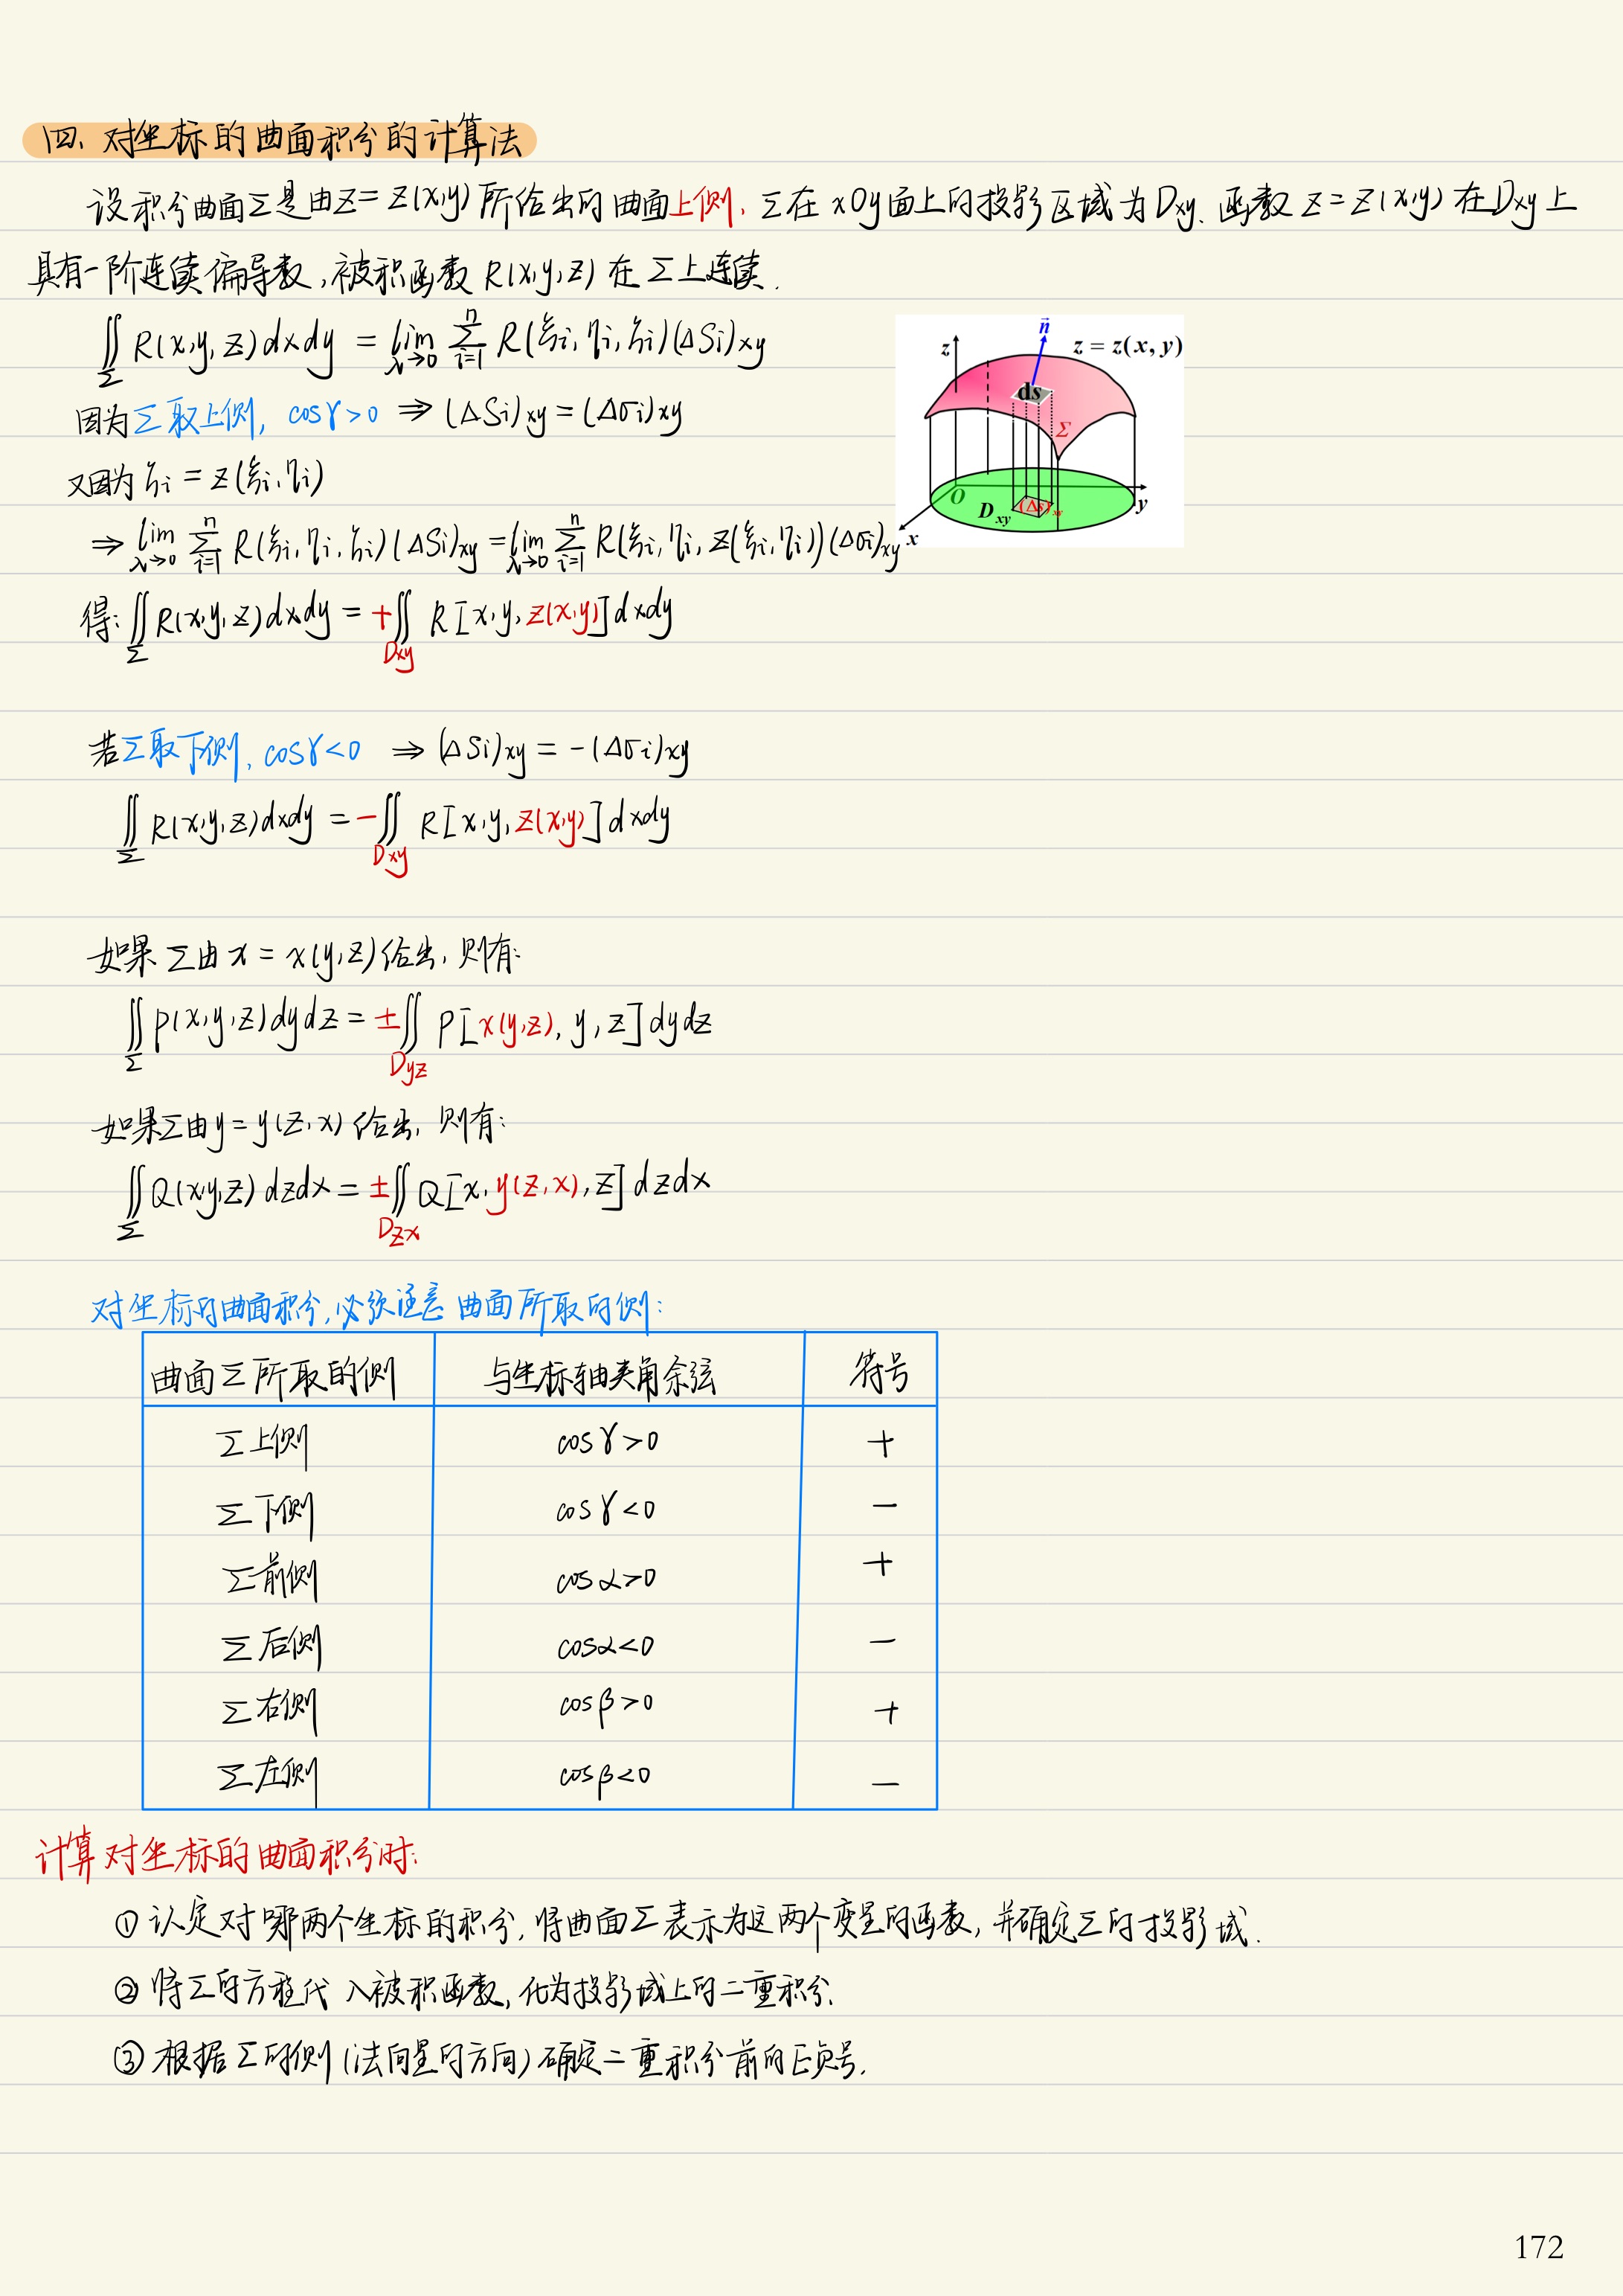 四、对坐标的曲面积分的计算法
设积分曲面Σ是由z=z(x,y)所给出的曲面上侧,Σ在xOy面上的投影区域为Dxy.函数z=z(x,y)在Dxy上
具有一阶连续偏导数,被积函数R(x,y,z)在Σ上连续.
∬_Σ R(x,y,z)dxdy = lim_{λ→0} Σ_{i=1}^{n} R(ξi,ηi,ζi)(ΔSi)xy
因为Σ取上侧, cosγ>0 ⇒ (ΔSi)xy=(Δσi)xy
又因为ζi=z(ξi,ηi)
⇒ lim_{λ→0} Σ_{i=1}^{n} R(ξi,ηi,ζi)(ΔSi)xy = lim_{λ→0} Σ_{i=1}^{n} R(ξi,ηi,z(ξi,ηi))(Δσi)xy
得:∬_Σ R(x,y,z)dxdy = +∬_{Dxy} R[x,y,z(x,y)]dxdy
n⃗
z
z = z(x, y)
ds
Σ
O
Dxy
(Δs)xy
y
x
若Σ取下侧, cosγ<0 ⇒ (ΔSi)xy=-(Δσi)xy
∬_Σ R(x,y,z)dxdy = -∬_{Dxy} R[x,y,z(x,y)]dxdy
如果Σ由x=x(y,z)给出,则有:
∬_Σ P(x,y,z)dydz = ±∬_{Dyz} P[x(y,z),y,z]dydz
如果Σ由y=y(z,x)给出,则有:
∬_Σ Q(x,y,z)dzdx = ±∬_{Dzx} Q[x,y(z,x),z]dzdx
对坐标的曲面积分,必须注意曲面所取的侧:
曲面Σ所取的侧 与坐标轴夹角余弦 符号
Σ上侧 cosγ>0 +
Σ下侧 cosγ<0 −
Σ前侧 cosα>0 +
Σ后侧 cosα<0 −
Σ右侧 cosβ>0 +
Σ左侧 cosβ<0 −
计算对坐标的曲面积分时:
① 认定对哪两个坐标的积分,将曲面Σ表示为这两个变量的函数,并确定Σ的投影域.
② 将Σ的方程代入被积函数,化为投影域上的二重积分.
③ 根据Σ的侧(法向量的方向)确定二重积分前的正负号.
172